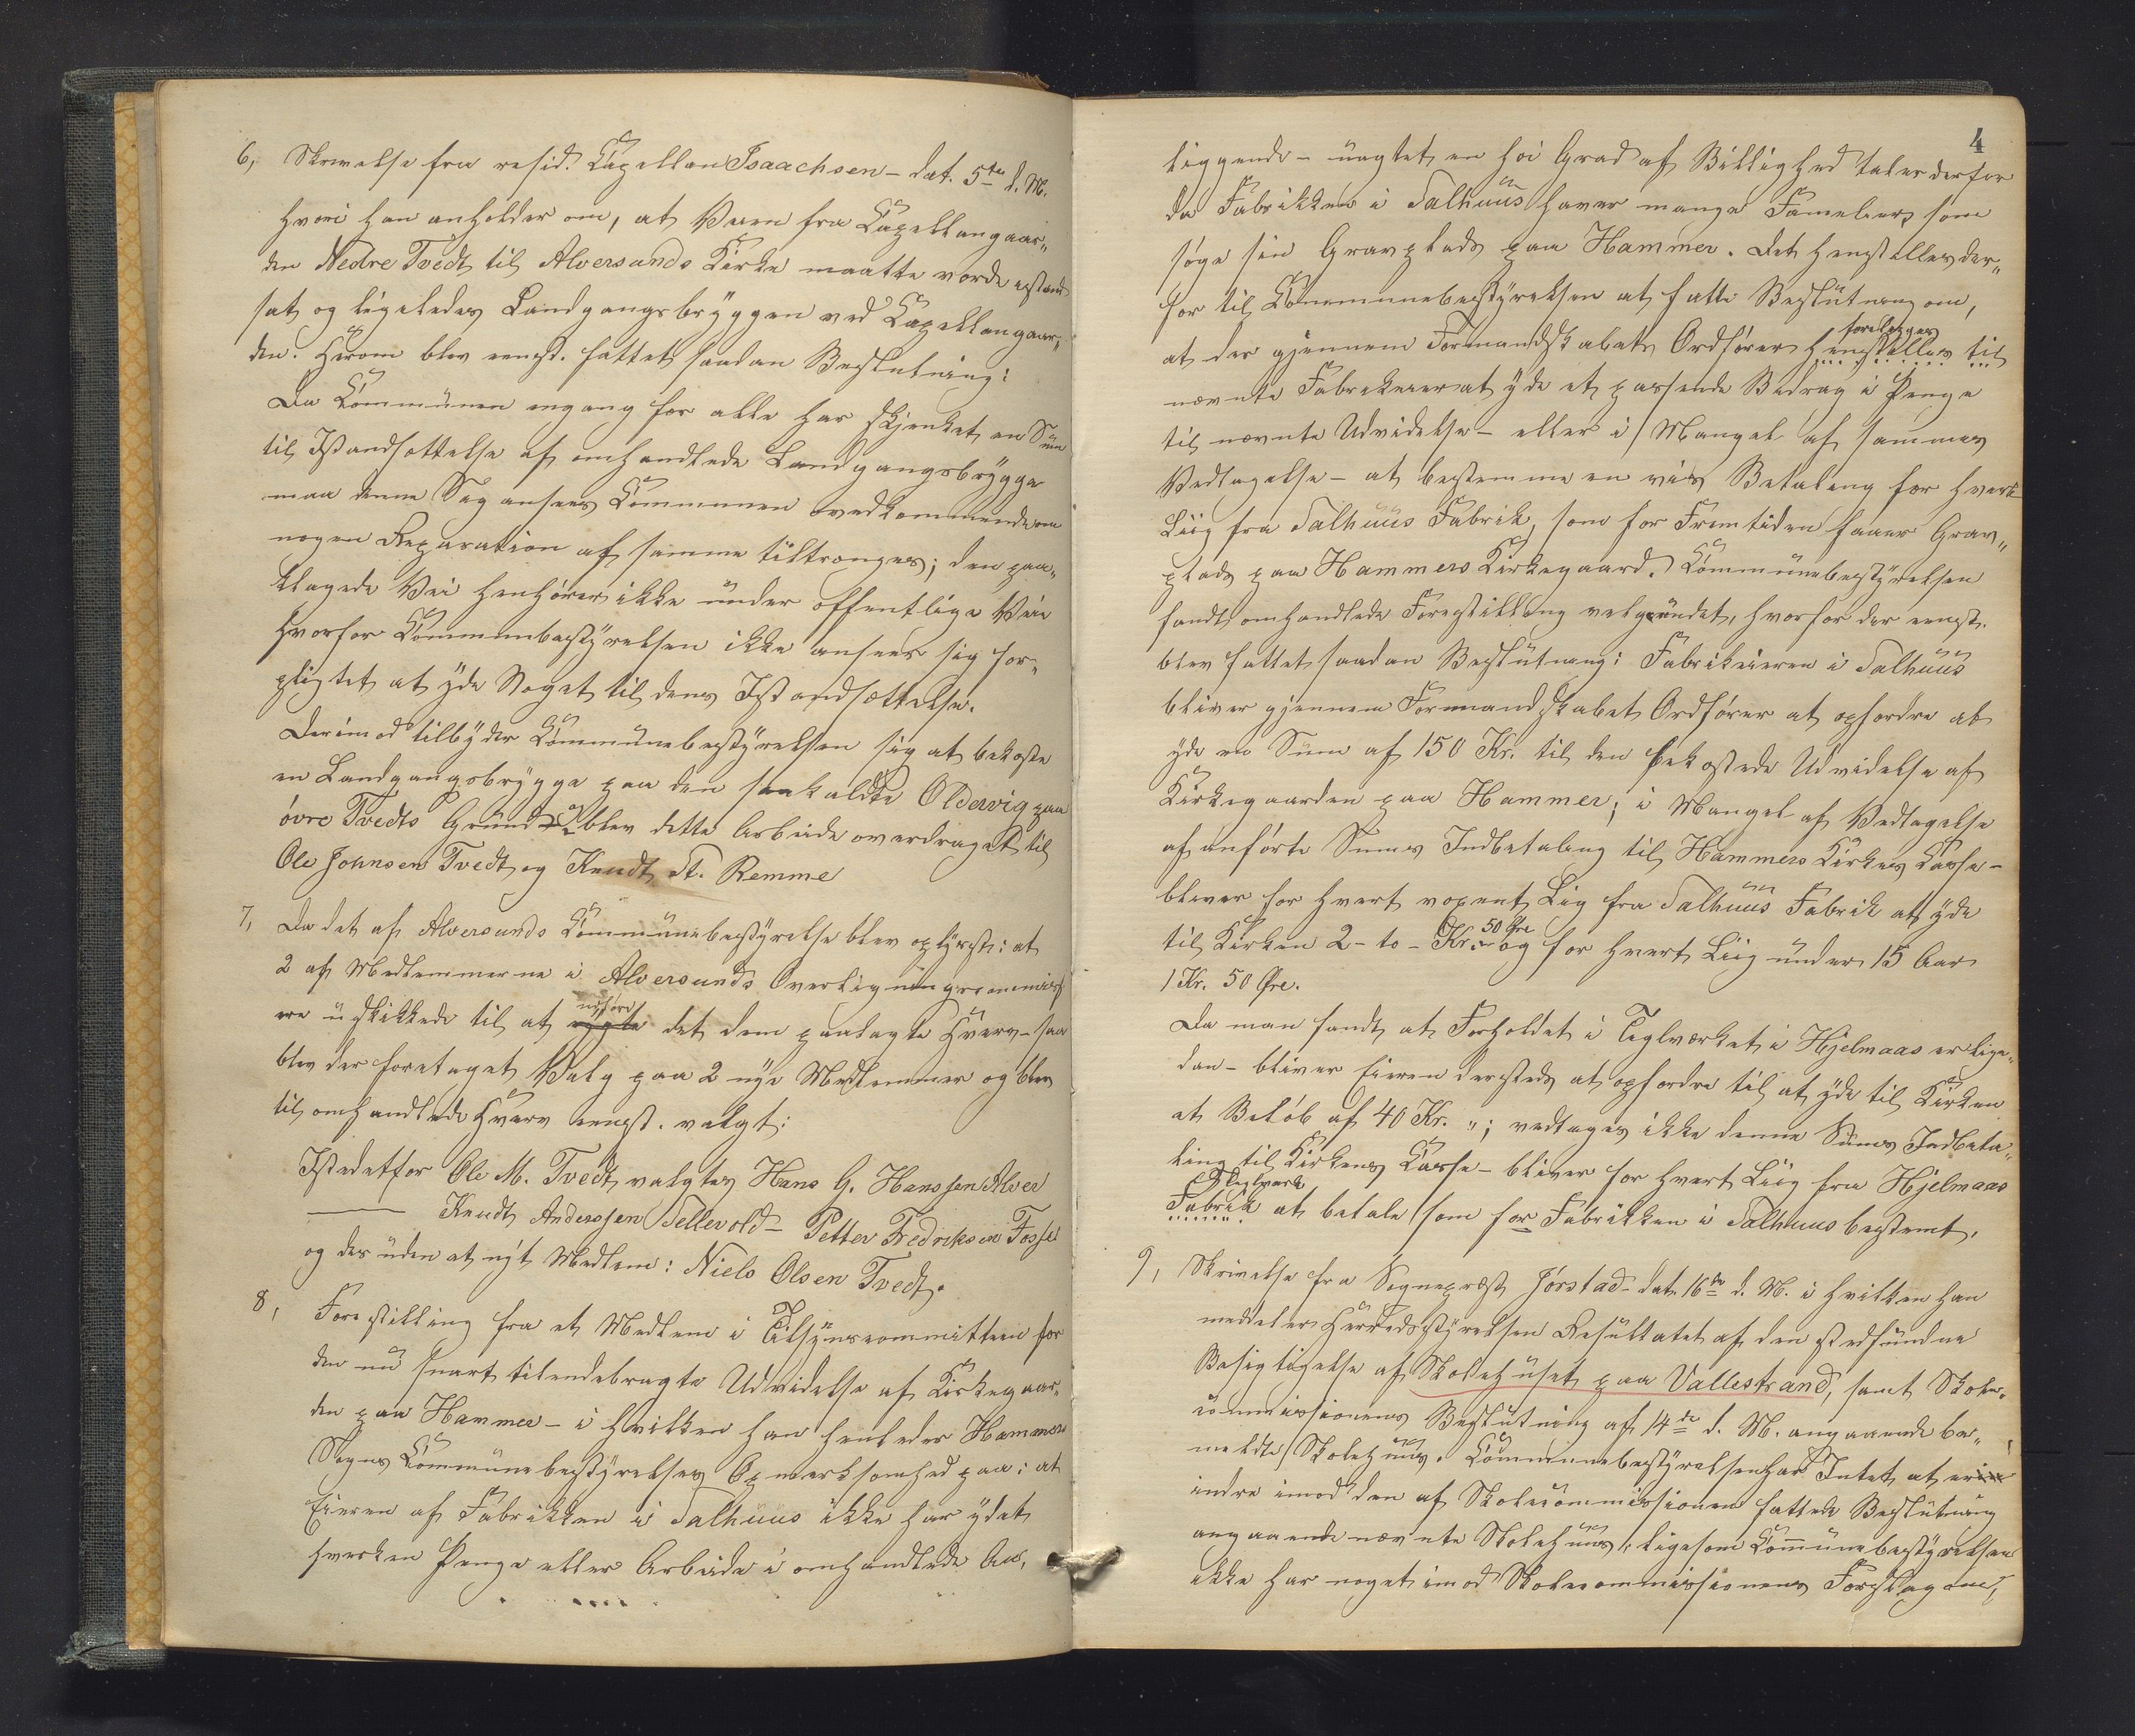 6, Skrivelse fra resid. Capellan Isaachsen – dat. 5te d. M.
hvori han anholder om, at Veien fra Capellangaar„
den Nedre Tvedt til Alversunds Kirke maatte vorde istand
sat og ligeledes Landgangsbryggen ved Capellangaar„
den. Herom blev eenst. fattet saadan Beslutning:
Da Kommunen engang for alle har skjenket en Sum
til Istandsættelse af omhandlede Landgangsbrygge
maa denne Sag ansees Kommunen uvedkommende om
nogen Reparation af samme tiltrænges; den paa„
klagede Vei henhører ikke under offentlige Veie
hvorfor Kommunebestyrelsen ikke anseer sig for„
pligtet at yde Noget til dens Istandsættelse.
Derimod tilbyder Kommunebestyrelsen sig at bekoste
en Landgangsbrygge paa den saakaldte Oldervig paa
øvre Tvedts Grund og blev dette Arbeide overdraget til
Ole Johnsen Tvedt og Knudt St. Remme
7, Da det af Alversunds Kommunebestyrelse blev oplyst: at
2 af Medlemmerne i Alversunds Overligningscommiss
ere uskikkede til at udføre det dem paalagte Hverv – saa
blev der foretaget Valg paa 2 nye Medlemmer og blev
til omhandlede Hverv eenst. valgt:
Istedetfor Ole M. Tvedt valgtes Hans G. Hanssen Alver
—— Knudt Anderssen Tellevold – Petter Fredriksen Fosse
og desuden et nyt Medlem: Niels Olsen Tvedt.
8, Forestilling fra et Medlem i Tilsynscommitteen for
den nu snart tilendebragte Udvidelse af Kirkegaar„
den paa Hammer – i hvilken han henleder Hammers
Sogns Kommunebestyrelses Opmerksomhed paa: at
Eieren af Fabrikken i Salhuus ikke har ydet
hverken Penge eller Arbeide i omhandlede An„
4
liggende – uagtet en høi Grad af Billighed taler derfor
da Fabrikken i Salhuus haver mange Familier, som
søge sin Gravplads paa Hammer. Det henstilles der„
for til Kommunebestyrelsen at fatte Beslutning om,
forelægges
at der gjennem Formandskabets Ordfører henstilles til
nævnte Fabrikeier at yde et passende Bidrag i Penge
til nævnte Udvidelse – eller i Mangel af sammes
Vedtagelse – at bestemme en vis Betaling for hvert
Liig fra Salhuus Fabrik, som for Fremtiden faaer Grav„
plads paa Hammers Kirkegaard. Kommunebestyrelsen
fandt omhandlede Forestilling velgrundet, hvorfor der eenst.
blev fattet saadan Beslutning: Fabrikeieren i Salhuus
bliver gjennem Formandskabet Ordfører at opfordre at
yde en Sum af 150 Kr. til den bekostede Udvidelse af
Kirkegaarden paa Hammer; i Mangel af Vedtagelse
af anførte Sums Indbetaling til Hammers Kirkes Kasse –
bliver for hvert voxent Lig fra Salhuus Fabrik at yde
til Kirken 2 – to – Kr. 50 Øre og for hvert Liig under 15 Aar
1 Kr. 50 Øre.
Da man fandt at Forholdet i Teglværket i Hjelmaas er lige„
dan – bliver Eieren dersteds at opfordre til at yde til Kirken
et Beløb af 40 Kr. „; vedtages ikke denne Sums Indbeta„
ling til Kirkens Kasse – bliver for hvert Liig fra Hjelmaas
Teglværk
Fabrik at betale som for Fabrikken i Salhuus bestemt.
9, Skrivelse fra Sognepræst Jørstad – dat. 16de d. M. i hvilken han
meddeler Herredsstyrelsen Resultatet af den stedfundne
Besigtigelse af Skolehuset paa Vallestrand, samt Skole„
commissionens Beslutning af 14de d. M. angaaende be„
meldte Skolehuus. Kommunebestyrelsen har Intet at er
indre imod den af Skolecommissionen fattede Beslutning
angaaende nævnte Skolehuus, ligesom Kommunebestyrelsen
ikke har noget imod Skolecommissionens Forslag om,